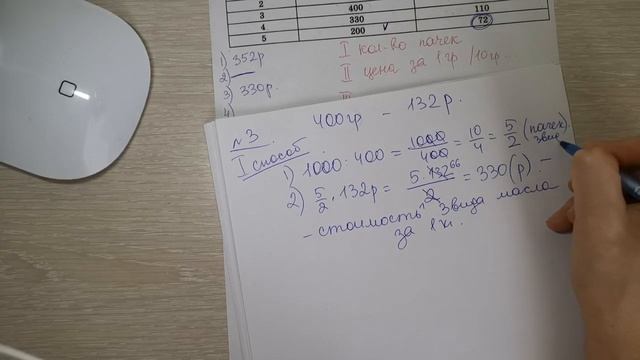 2 400 110
3 330
4 200 72
5
1) 352р
2)
3) 330р.
4)
I кол-во пачек
II цена за 1гр /10гр...
III
400гр – 132р.
№3.
I способ.
1) 1000:400 = 1000/400 = 10/4 = 5/2 (пачек) 3вида
2) 5/2 · 132р = 5·132 66/2 = 330(р). –
– стоимость 3вида масла
за 1кг.